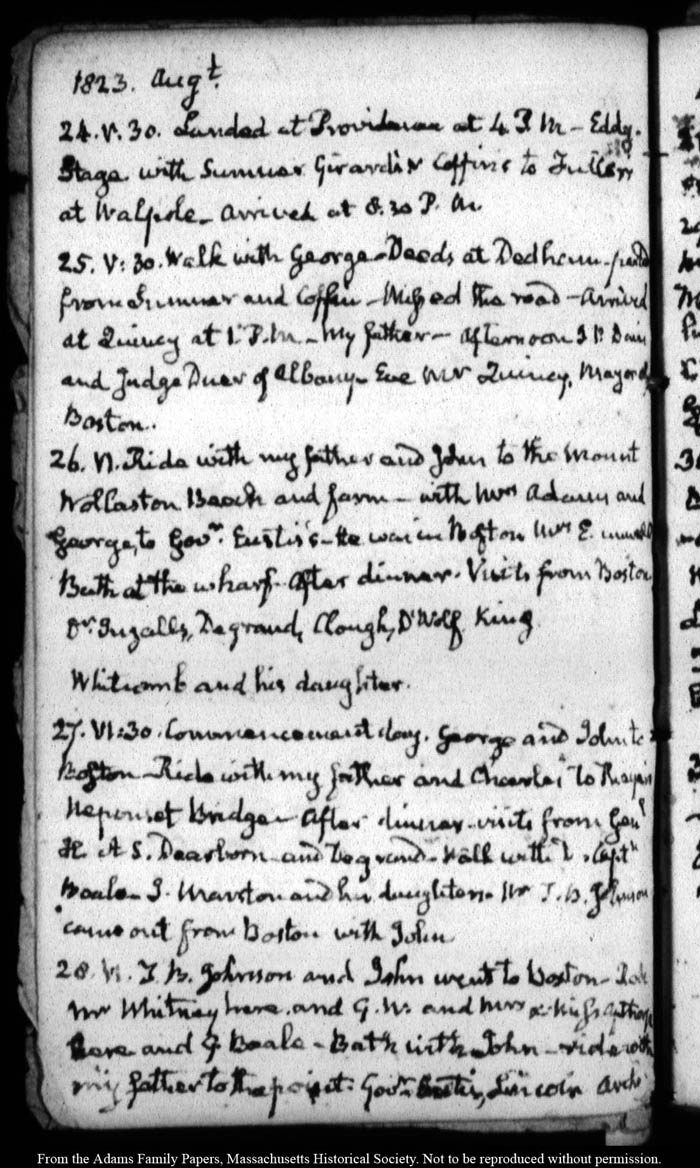 1823. Augt.
24. V. 30. Landed at Providence at 4 P. M — Eddy.
Stage with Sumner Girardin Coffins to Fullers
at Walpole — arrived at 8.30 P. M.
25. V: 30. Walk with George — Deeds at Dedham —
from Sumner and Coffin — Missed the road — Arrived
at Quincy at 1. P. M. — My father — Afternoon J. P. Davis
and Judge Duer of Albany — Eve Mr Quincy, Mayor of
Boston.
26. VI. Ride with my father and John to the Mount
Wollaston Beach and farm — with Mrs Adams and
George, to Govr. Eustis's — He was in Boston Mrs E. unwell
Bath at the wharf. After dinner. Visits from Boston
Dr. Ingalls, Degrand, Clough, D'Wolf King
Whitcomb and his daughter.
27. VI: 30. Commencement day. George and John to
Boston — Ride with my father and Charles to
Neponset Bridge — After dinner — visits from Genl
H. A S. Dearborn — and Degrand — Walk with Captn
Beale — J. Marston and his daughters — Mr T. B. Johnson
came out from Boston with John
28. VI. T. B. Johnson and John went to Boston —
Mr Whitney here. and G. W. and Mrs & Miss
here and G Beale — Bath with John — ride with
my father to the point. Govr. Eustis, Lincoln
From the Adams Family Papers, Massachusetts Historical Society. Not to be reproduced without permission.